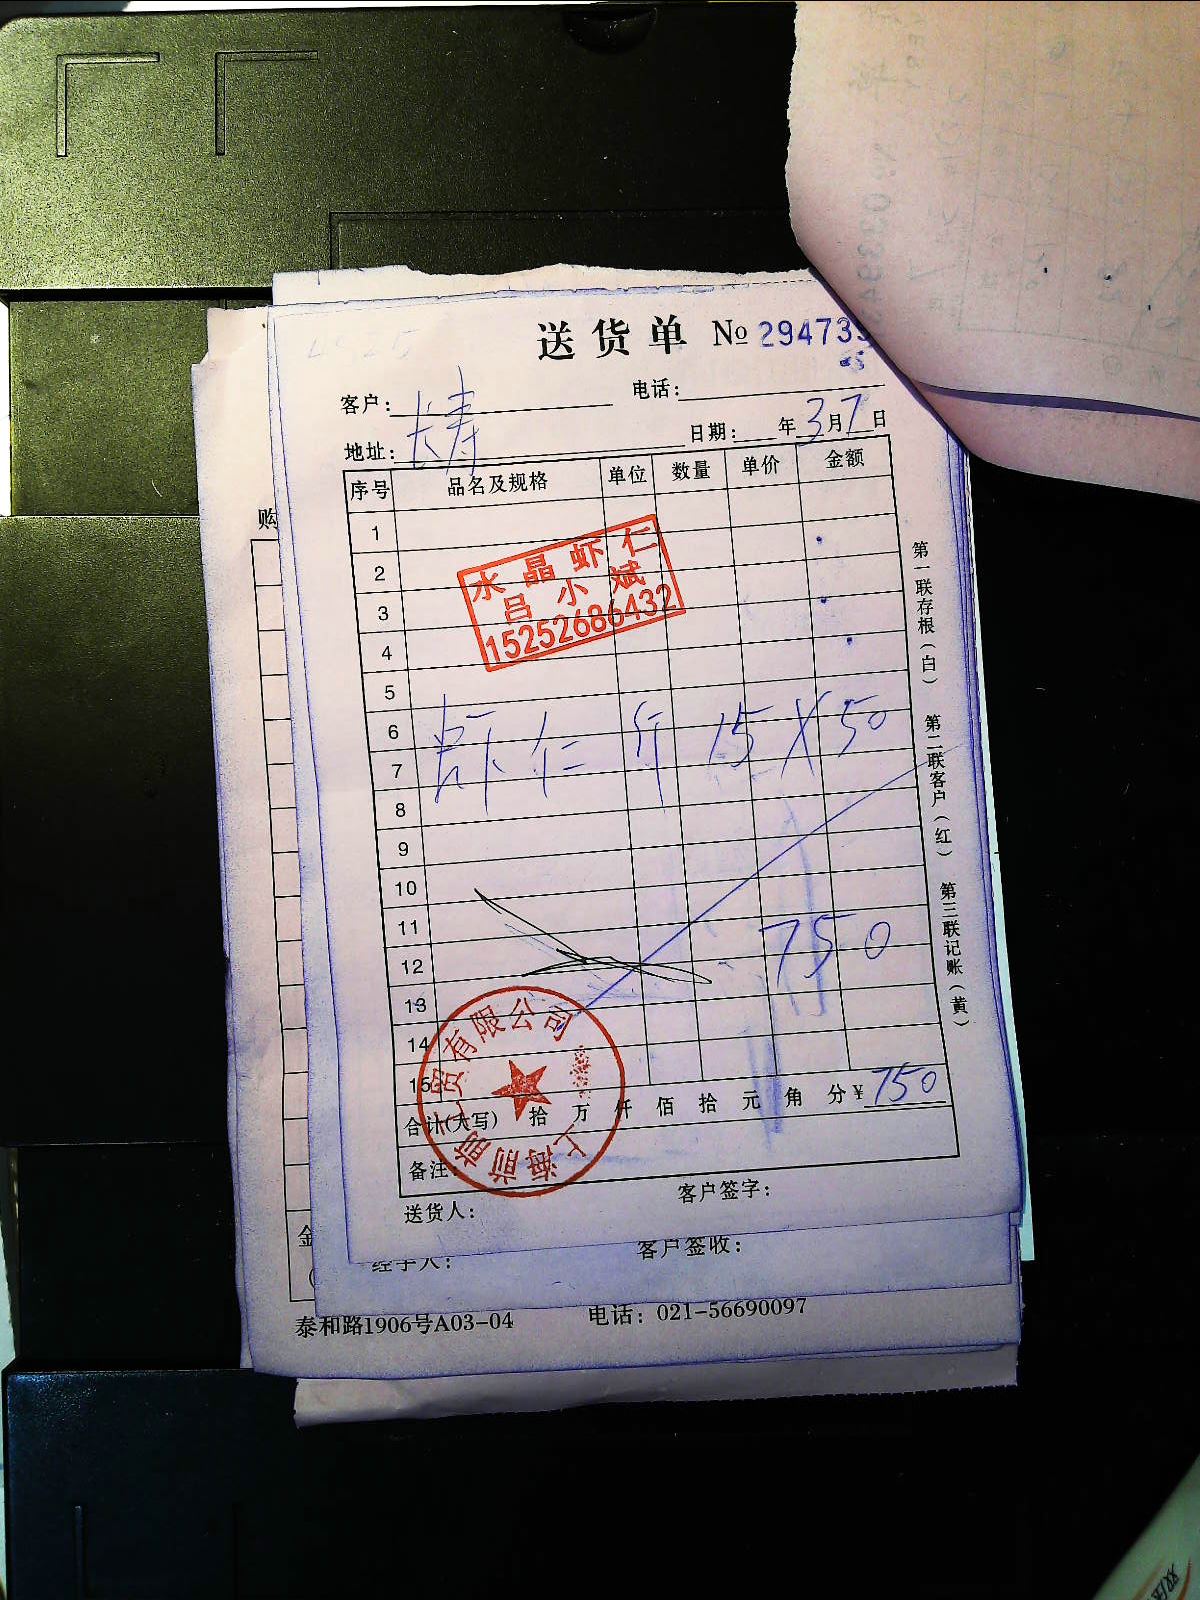 送货单 № 294733
客户： 长寿 电话：
地址： 日期： 年 3 月 7 日
序号 品名及规格 单位 数量 单价 金额
1
2
3
4
5
6
7
8
9
10
11
12
13
14
15
水晶虾仁
吕小斌
15252686432
虾仁 斤 15 X 50
750
合计(大写) 拾 万 仟 佰 拾 元 角 分 ¥ 750
备注：
送货人： 客户签字：
第一联存根（白） 第二联客户（红） 第三联记账（黄）
购
金
经手人： 客户签收：
泰和路1906号A03-04 电话：021-56690097